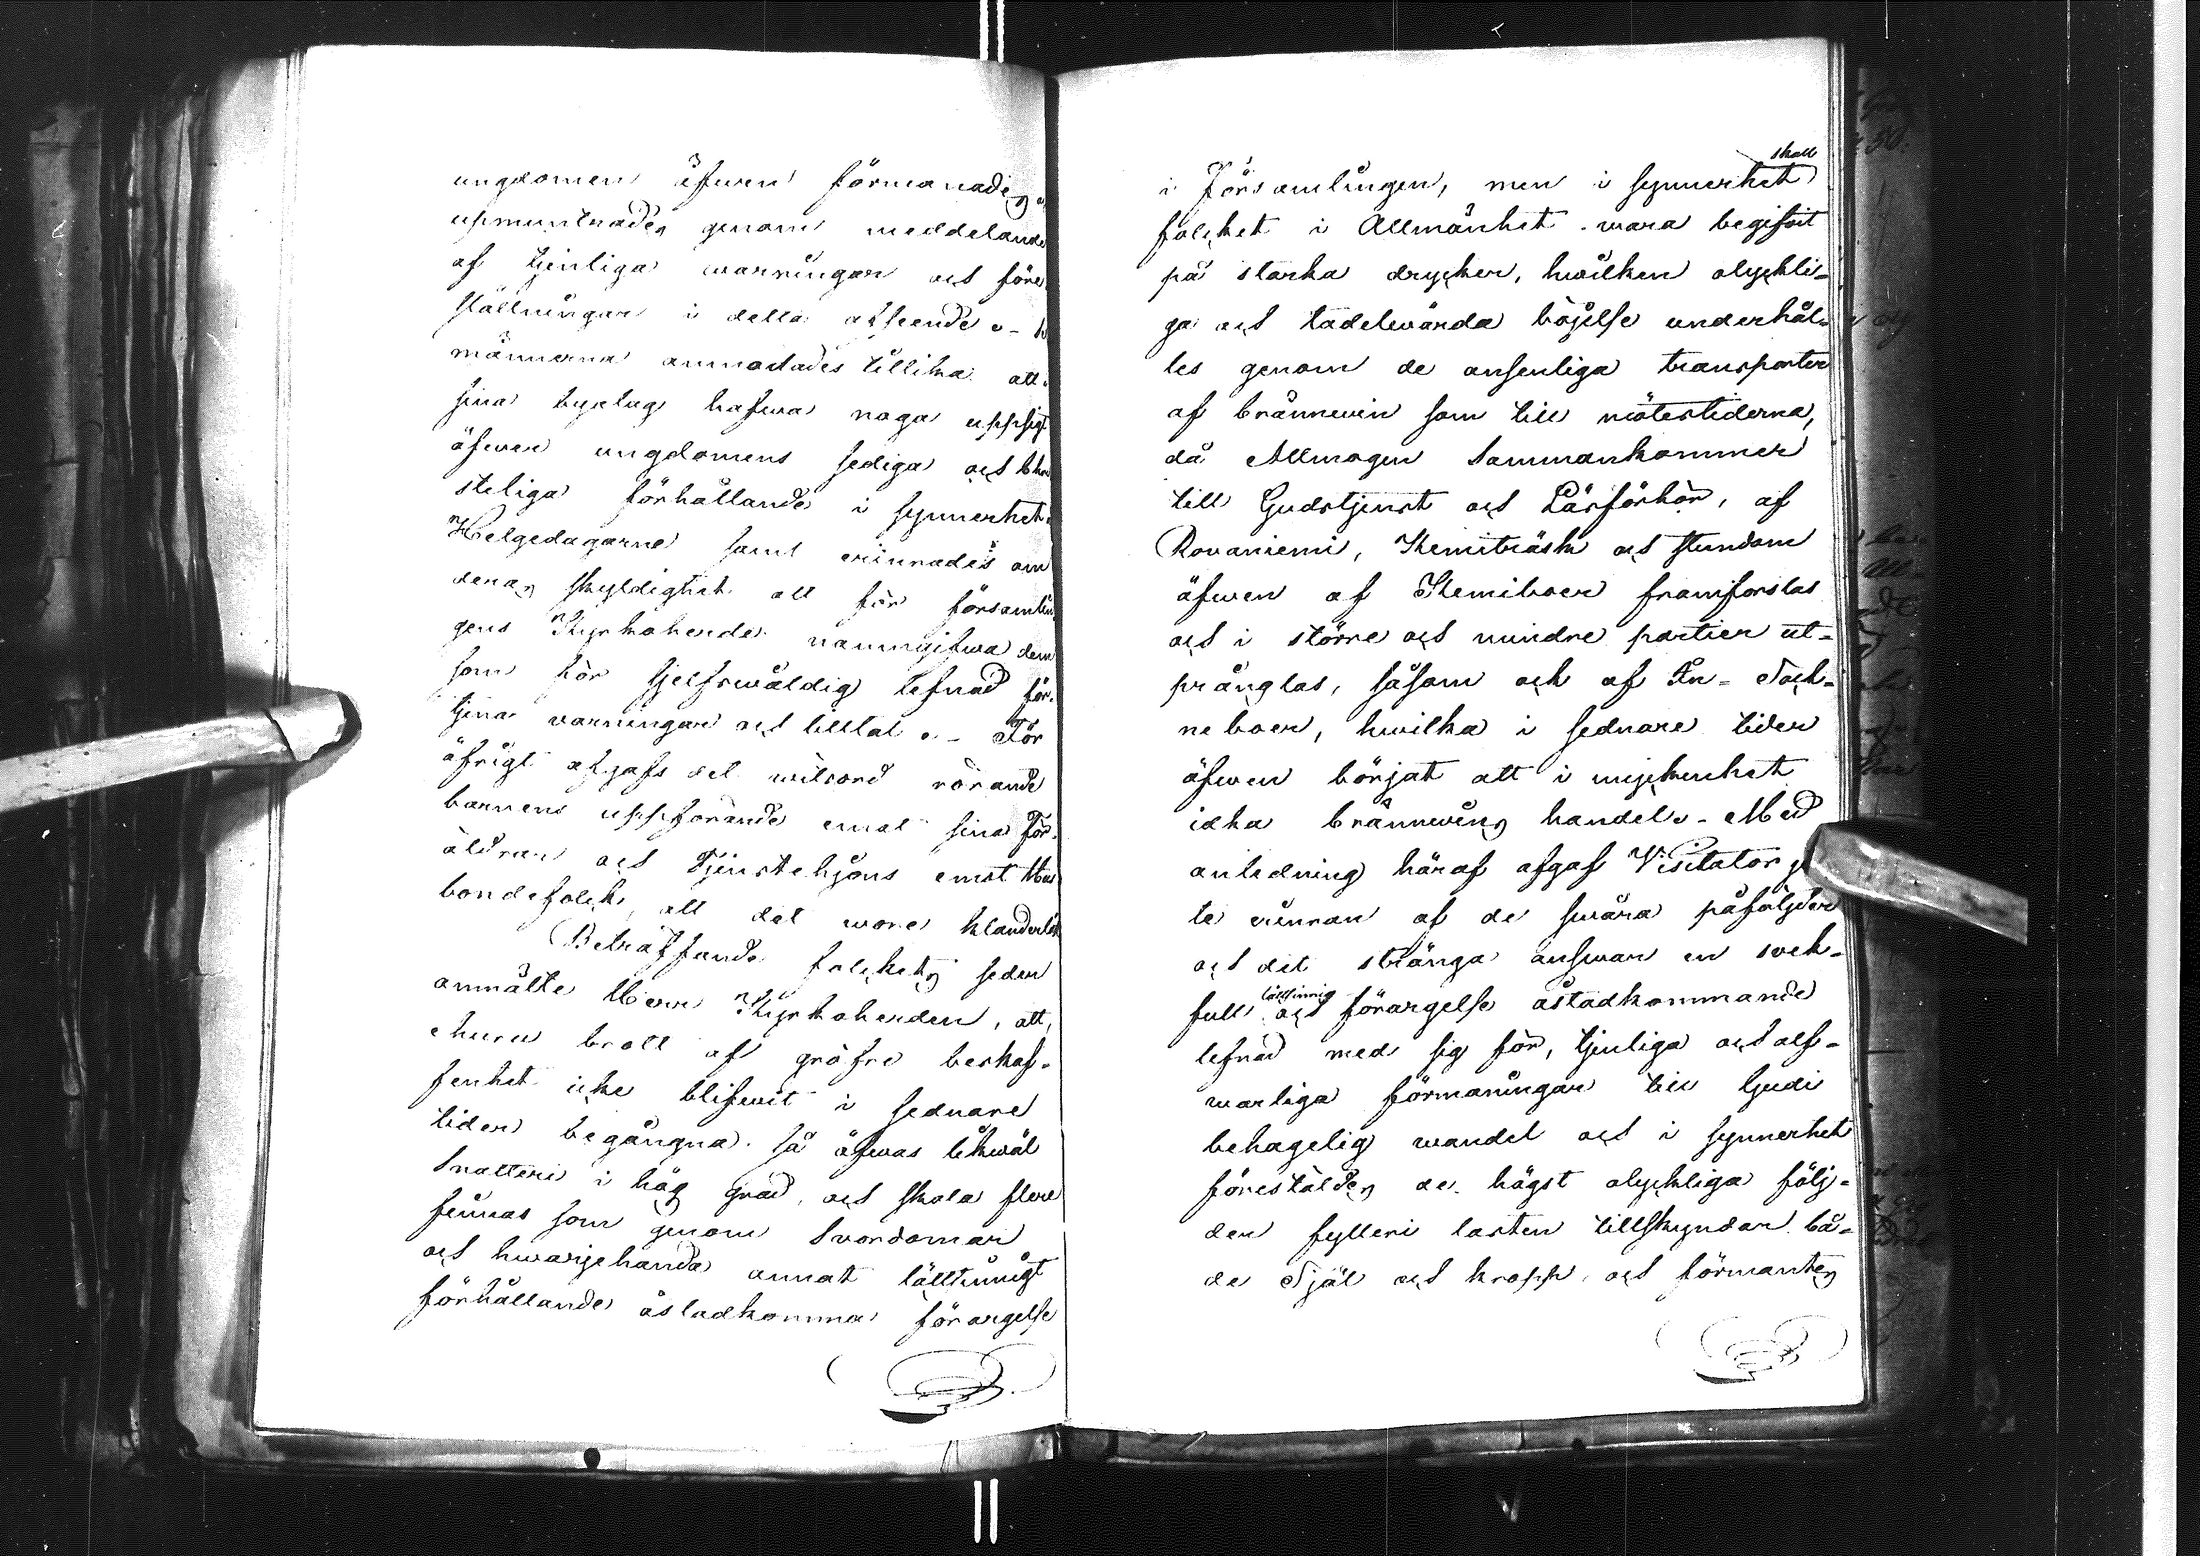 ungdomen äfwen förmanades
upmuntrades genom meddelande
af tjenliga warningar och före
ställningar i detta afseende
männerna anmodades tillika att
sina byelag hafwa noga uppsigt
öfwer ungdomens sediga och Chri
steliga förhållande i synnerhet
Helgedagarne samt erinrades om
deras skyldighet att för församlin
gens Kyrkoherde namngifwa dem
som för sjelfswåldig lefnad för-
tjena warningar och tilltal. - För
öfrigt afgafs det witsord rörande
barnens uppförande emot sina För-
äldrar och Tjenstehjons emot Hus
bondefolck, att det wore klanderlöst
Beträffande folckets seder
anmälte Herr Kyrkoherden, att,
ehuru brott af gröfre beskaf-
fenhet icke blifwit i sednare
tider begångna, så öfwas likwäl
snatteri i hög grad, och skola flere
finnas som genom Svordomar
och hwarjehanda annat lättsinnigt
förhållande åstadkomma förargelse
i Församlingen, men i synnerhet skall
folcket i Allmänhet wara begifvit
på starka drycker, hwilken olyckli-
ga och tadelwärda böjelse underhål-
les genom de ansenliga transporter
af brännewin som till mötestiderna,
då Allmogen Sammankommer
till Gudstjenst och Läsförhör, af
Rovaniemi, Kemiträsk och stundom
äfwen af Kemiboer framforslas
och i större och mindre partier ut-
prånglas, såsom ock af In- Sock-
neboer, hwilka i sednare tider
äfwen börjat att i myckenhet
idka brännewins handel. - Med
anledning häraf afgaf Visitator
te erinran af de swåra påföljder
och det stränga answar en svek-
full lättsinnig och förargelse åstadkommande
lefnad med sig för, tjenliga och alf-
warliga förmaningar till Gudi
behagelig wandel och i synnerhet
förestäldes de högst olyckliga följ-
der fylleri lasten tillskyndar bå-
de Själ och kropp, och förmantes